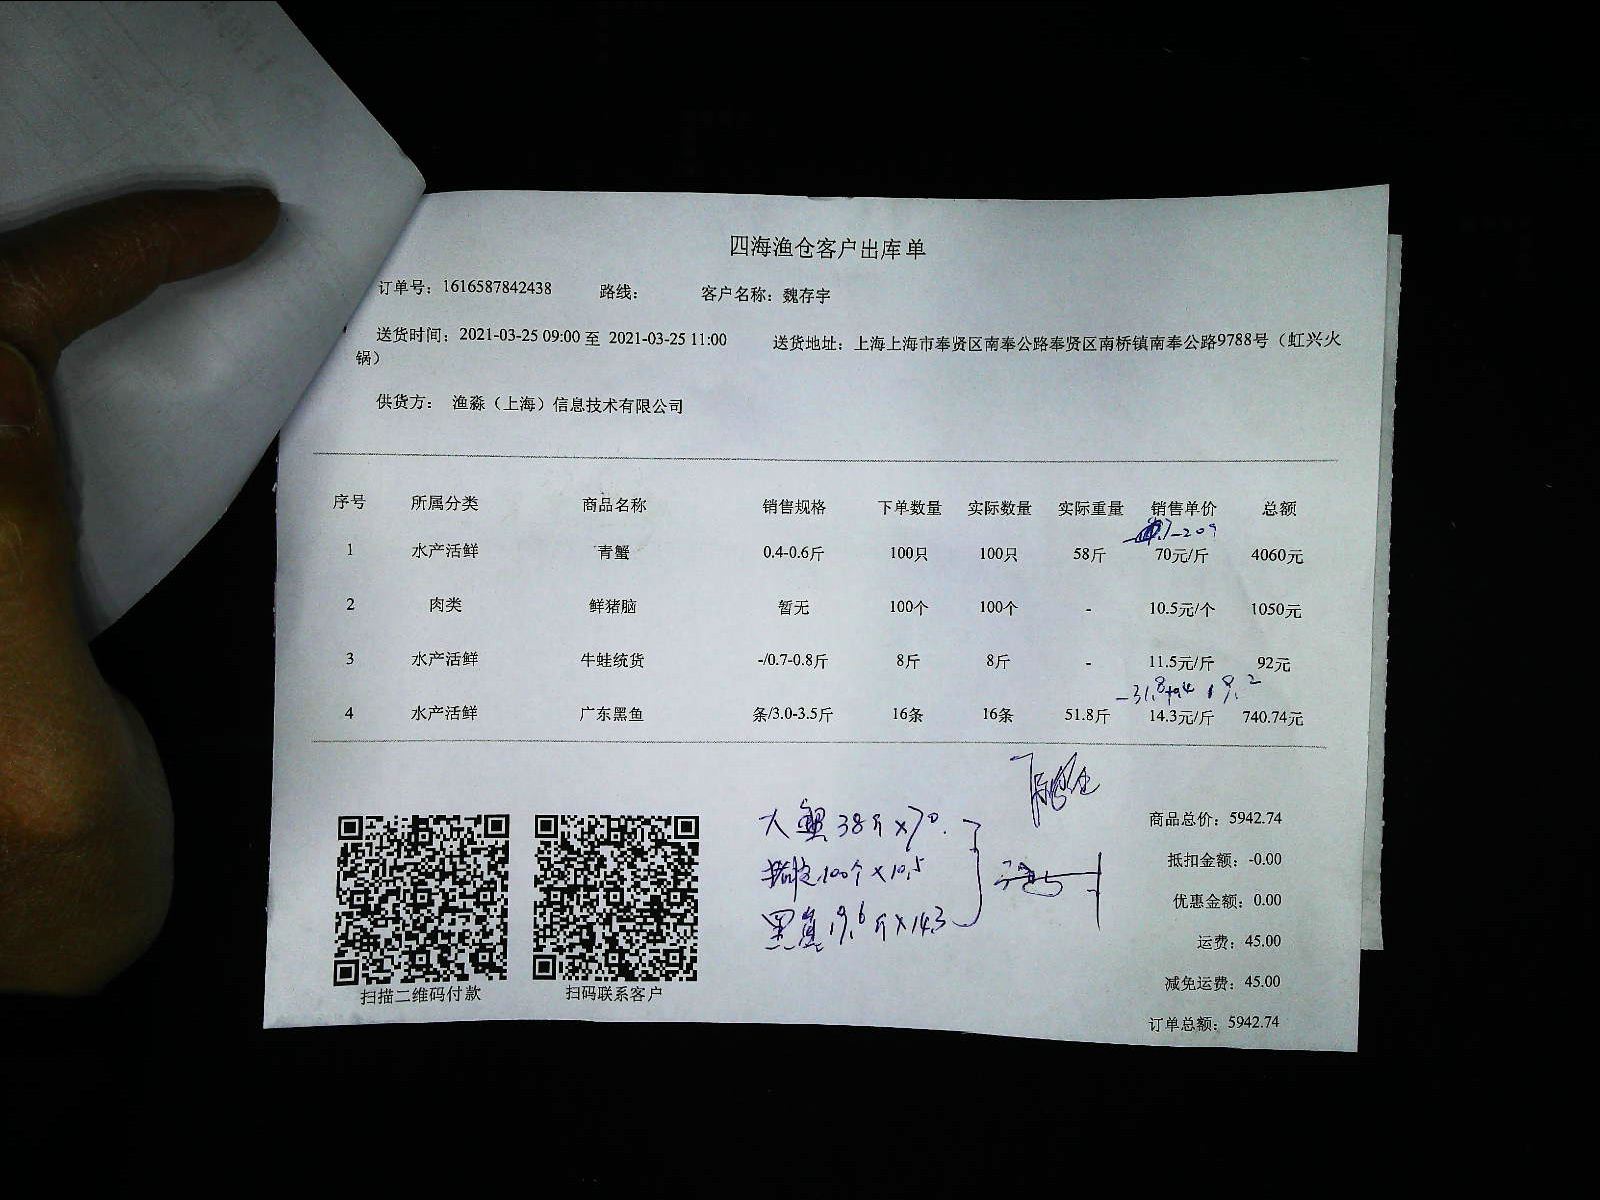 四海渔仓客户出库单
订单号：1616587842438 路线： 客户名称：魏存宇
送货时间：2021-03-25 09:00 至 2021-03-25 11:00 送货地址：上海上海市奉贤区南奉公路奉贤区南桥镇南奉公路9788号（虹兴火
锅）
供货方： 渔淼（上海）信息技术有限公司
序号 所属分类 商品名称 销售规格 下单数量 实际数量 实际重量 销售单价 总额
1 水产活鲜 青蟹 0.4-0.6斤 100只 100只 58斤 70元/斤 4060元
2 肉类 鲜猪脑 暂无 100个 100个 - 10.5元/个 1050元
3 水产活鲜 牛蛙统货 -/0.7-0.8斤 8斤 8斤 - 11.5元/斤 92元
4 水产活鲜 广东黑鱼 条/3.0-3.5斤 16条 16条 51.8斤 14.3元/斤 740.74元
大蟹 38斤×70
100个×10.5
黑鱼 19.6斤×14.3
扫描二维码付款 扫码联系客户
商品总价：5942.74
抵扣金额：-0.00
优惠金额：0.00
运费：45.00
减免运费：45.00
订单总额：5942.74